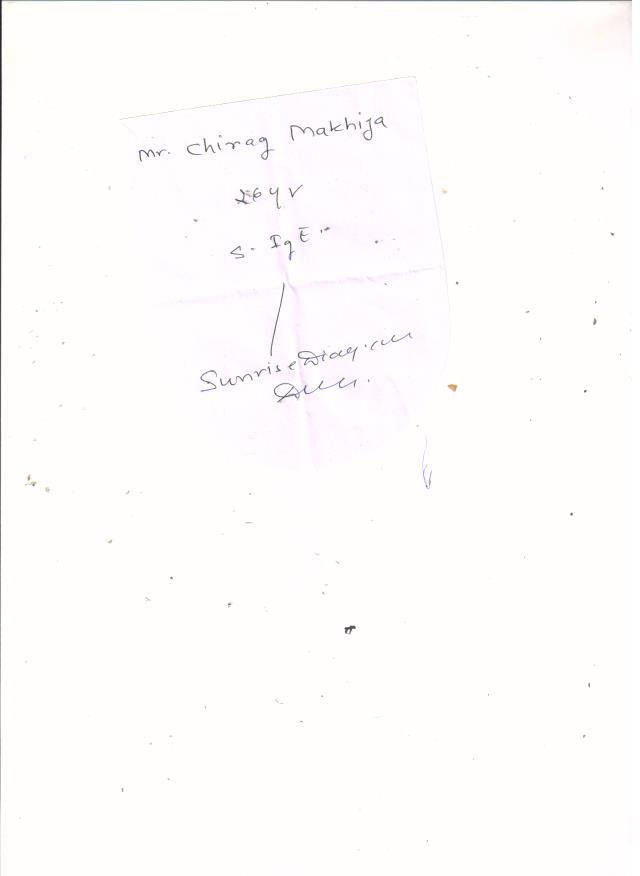 Mr. Chirag Makhija
26 yr
S. IgE
Sunrise Diag.